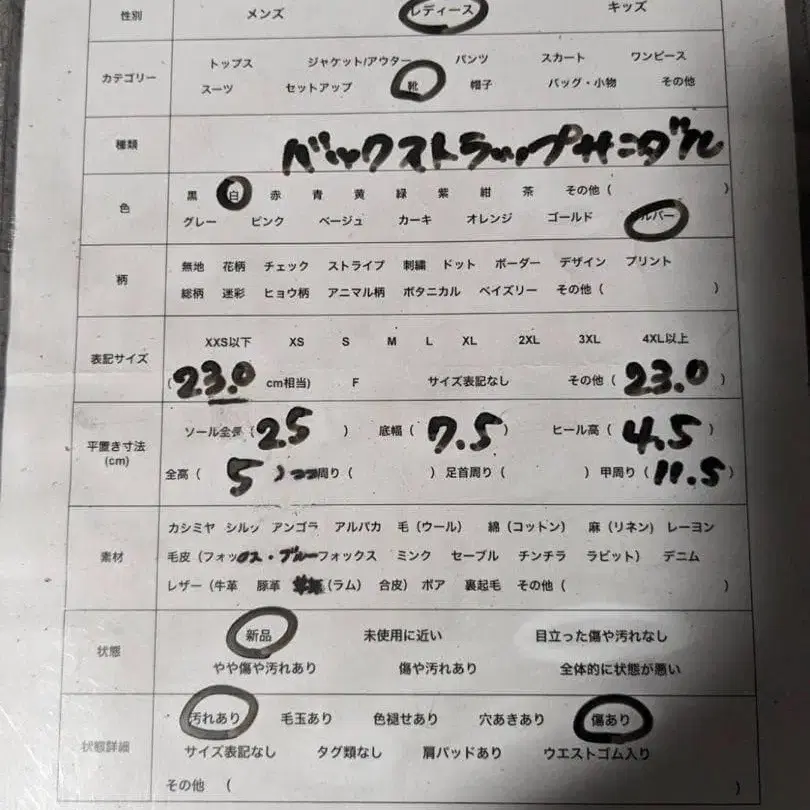 性別 メンズ レディース キッズ
カテゴリー トップス ジャケット/アウター パンツ スカート ワンピース
スーツ セットアップ 靴 帽子 バッグ・小物 その他
種類 バックストラップサンダル
色 黒 白 赤 青 黄 緑 紫 紺 茶 その他 ( )
グレー ピンク ベージュ カーキ オレンジ ゴールド ルバー
柄 無地 花柄 チェック ストライプ 刺繍 ドット ボーダー デザイン プリント
総柄 迷彩 ヒョウ柄 アニマル柄 ボタニカル ペイズリー その他 ( )
表記サイズ XXS以下 XS S M L XL 2XL 3XL 4XL以上
(23.0 cm相当) F サイズ表記なし その他 (23.0)
平置き寸法 (cm) ソール全長 (25) 底幅 (7.5) ヒール高 (4.5)
全高 (5) 周り ( ) 足首周り ( ) 甲周り (11.5)
素材 カシミヤ シルッ アンゴラ アルパカ 毛 (ウール) 綿 (コットン) 麻 (リネン) レーヨン
毛皮 (フォックス・ブルーフォックス ミンク セーブル チンチラ ラビット) デニム
レザー (牛革 豚革 (ラム) 合皮) ボア 裏起毛 その他 ( )
状態 新品 未使用に近い 目立った傷や汚れなし
やや傷や汚れあり 傷や汚れあり 全体的に状態が悪い
状態詳細 汚れあり 毛玉あり 色褪せあり 穴あきあり 傷あり
サイズ表記なし タグ類なし 肩パッドあり ウエストゴム入り
その他 ( )